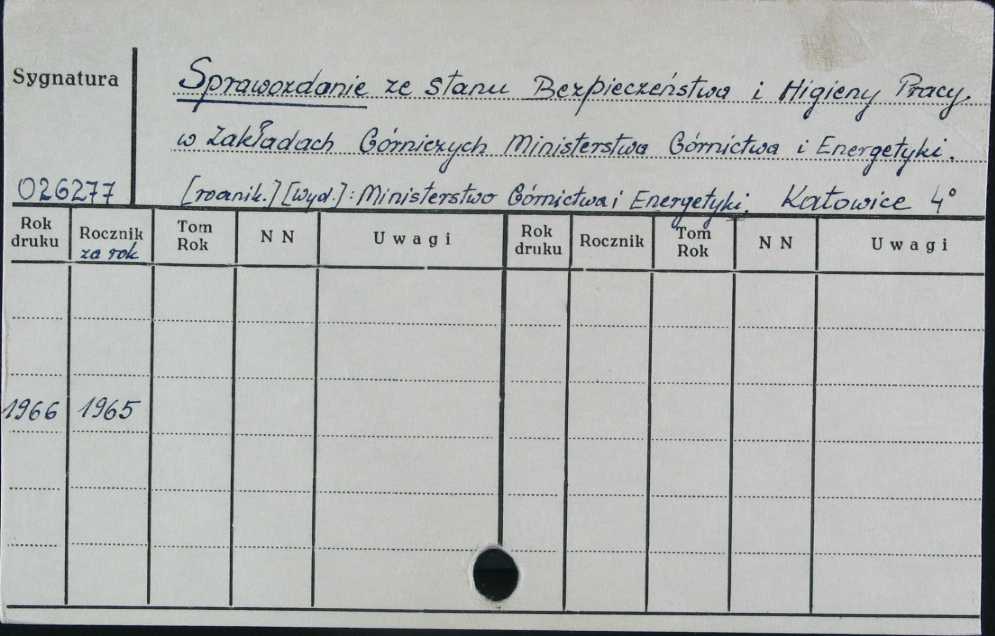 Sygnatura
Sprawozdanie ze stanu Bezpieczeństwa i Higieny Pracy
w Zakładach Górniczych Ministerstwa Górnictwa i Energetyki.
026277
[rocznik.] [wyd.]: Ministerstwo Górnictwa i Energetyki. Katowice 4°
Rok druku Rocznik za rok Tom Rok N N Uwagi Rok druku Rocznik Tom Rok N N Uwagi
1966 1965